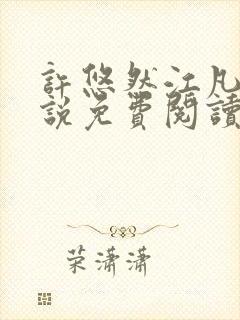 許悠然江凡
說免費閱讀
荣潇潇